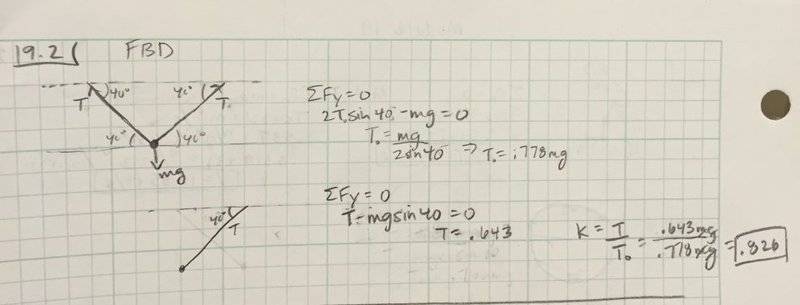 19.21 FBD
40° 40°
T T₀
40° 40°
mg
ΣFy=0
2T₀sin40-mg=0
T₀=mg/2sin40 ⇒ T₀=.778mg
40°
T
ΣFy=0
T-mgsin40=0
T=.643
K = T/T₀ = .643mg/.778mg = .826